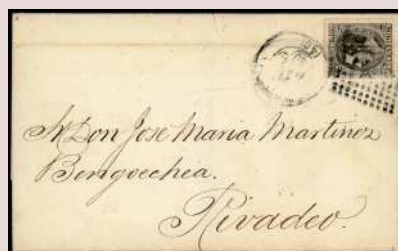 Sr. Don José Maria Martinez
Bengoechea.
Rivadeo.